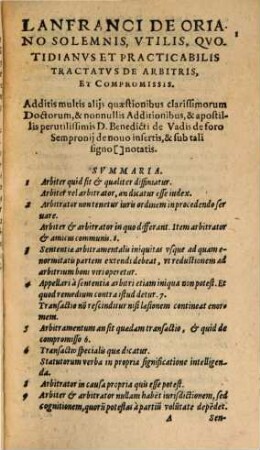 LANFRANCI DE ORIA-
NO SOLEMNIS, VTILIS, QVO-
TIDIANVS ET PRACTICABILIS
TRACTATVS DE ARBITRIS,
ET COMPROMISSIS.
Additis multis alijs quæstionibus clarissimorum
Doctorum, & nonnullis Additionibus, & apostil-
lis perutilissimis D. Benedicti de Vadis de foro
Sempronij de nouo insertis, & sub tali
signo [] notatis.
SVMMARIA.
1 Arbiter quid sit & qualiter diffiniatur.
Arbiter vel arbitrator, an ducatur esse iudex.
2 Arbitrator non tenetur iuris ordinem in procedendo ser
uare.
Arbiter & arbitrator in quo differant. Item arbitrator
& amicus communis. 1.
3 Sententia arbitramentalis iniquitas vsque ad quam e-
normitatis partem extendi debeat, vt reductionem ad
arbitrium boni viri operetur.
4 Appellari à sententia arbitri etiam iniqua non potest. Et
quod remedium contra istud detur. 7.
Transactio nō rescinditur nisi læsionem contineat enor
mem.
5 Arbitramentum an sit quædam transactio, & quid de
compromisso 6.
6 Transactio specialis quæ dicatur.
Statutorum verba in propria significatione intelligen
da.
8 Arbitrator in causa propria quis esse potest.
9 Arbiter & arbitrator nullam habēt iurisdictionem, sed
cognitionem, quorū potestas à partiū volūtate depēdet.
A Sen-